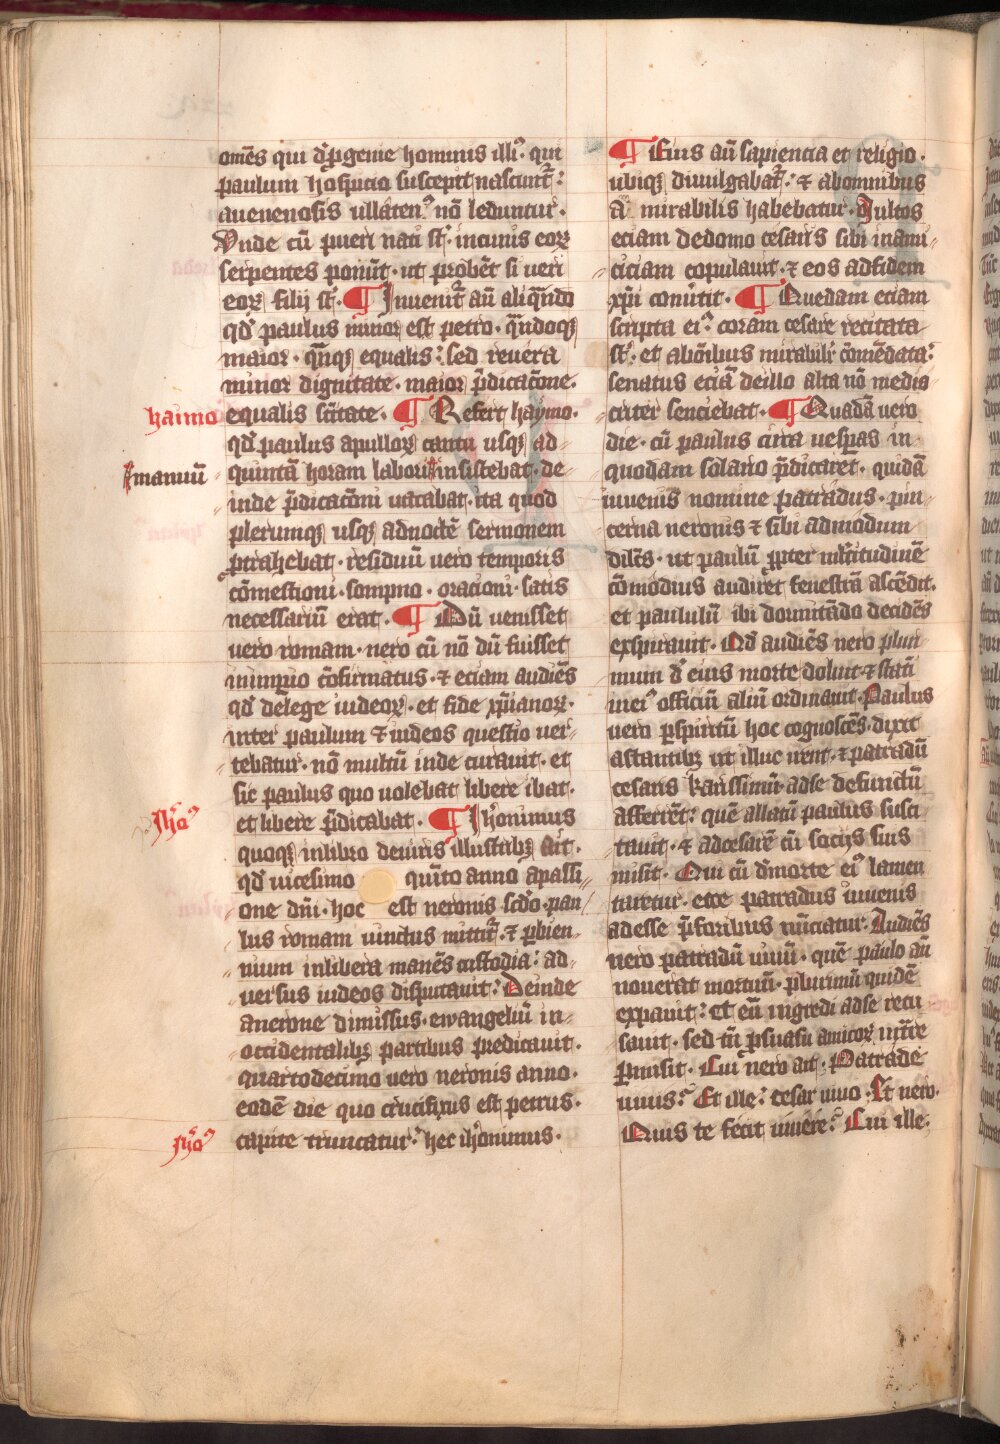 om̄es qui de ꝓgenie hominis illiꝰ qui
paulum hospicio suscepit nascunt᷑:
auenenosis ullatenꝰ nō leduntur·
Vnde cū pueri nati st̄· incunis eoꝝ
serpentes ponūt· ut ꝓbēt si ueri
eoꝝ filij st̄· ¶ Inuenit᷑ aū aliqn̄do
qd̄ paulus minor est petro· qn̄doqꝫ
maior· qn̄qꝫ equalis: sed reuera
minor dignitate· maior p̄dicac̄one·
haimo equalis sc̄titate· ¶ Refert haymo·
qd̄ paulus apulloꝝ cantu usqꝫ ad
manuū quintā horam labori insistebat· de
inde p̄dicac̄oni uacabat· ita quod
plerumqꝫ usqꝫ adnoctē sermonem
ꝓtrahebat· residuū uero temporis
cōmestioni· sompno· oracioni· satis
necessariū erat· ¶ Dū uenisset
uero romam· nero cū nō dū fuisset
inimperio ꝯfirmatus· ⁊ eciam audiēs
qd̄ delege iudeoꝝ· et fide xp̄ianoꝝ·
inter paulum ⁊ iudeos questio uer
tebatur· nō multū inde curauit· et
sic paulus quo uolebat libere ibat·
Jh̄oꝰ et libere p̄dicabat· ¶ Ih̄onimus
quoqꝫ inlibro deuiris illustribꝫ ait·
qd̄ uicesimo quīto anno apassi
one dn̄i· hoc est neronis sc̄do· pau
lus romam uinctus mittit᷑· ⁊ ꝑbien
nium inlibera manēs custodia: ad
uersus iudeos disputauit: Deinde
anerone dimissus· ewangeliū in
occidentalibꝫ partibus predicauit·
quartodecimo uero neronis anno·
eodē die quo crucifixus est petrus·
Jh̄oꝰ capite truncatur: hec ih̄onimus·
¶ Eius aū sapiencia et religio·
ubiqꝫ diuulgabat᷑: ⁊ abomnibus
a mirabilis habebatur· Multos
eciam dedomo cesaris sibi inami
ciciam copulauit· ⁊ eos adfidem
xp̄i conūtit· ¶ Quedam eciam
scripta eiꝰ coram cesare recitata
st̄: et abōibus mirabilr̄ cōmēdata:
senatus eciā deillo alta nō medio
criter senciebat· ¶ Quadā uero
die· cū paulus circa uesꝑas in
quodam solario p̄dicaret· quidā
iuuenis nomine patradus· pin
cerna neronis ⁊ sibi admodum
dilc̄s· ut paulū ꝓpter ml̄titudinē
cōmodius audiret fenestrā ascēdit·
et paululū ibi dormitādo decidēs
exspirauit· Qd̄ audiēs nero pluri
mum de eius morte doluit ⁊ statī
ineiꝰ officiū aliū ordinauit· Paulus
uero ꝑspiritū hoc cognoscēs· dixit
astantibꝫ ut illuc irent· ⁊ patradū
cesaris karissimū adse defunctū
afferrēt: quē allatū paulus susci
tauit· ⁊ adcesarē cū socijs suis
misit· Qui cū demorte eiꝰ lamen
taretur· ecce patradus iuuenis
adesse p̄foribus nūciatur· Audiēs
nero patradū uiuū· quē paulo an̄
nouerat mortuū· plurimū quidē
expauit: et eū ingredi adse recu
sauit· sed tn̄ ꝑsuasu amicoꝝ intr̄re
ꝑmisit· Cui nero ait· Patrade
uiuis: Et ille: cesar uiuo· Et nero·
Quis te fecit uiuere: Cui ille: